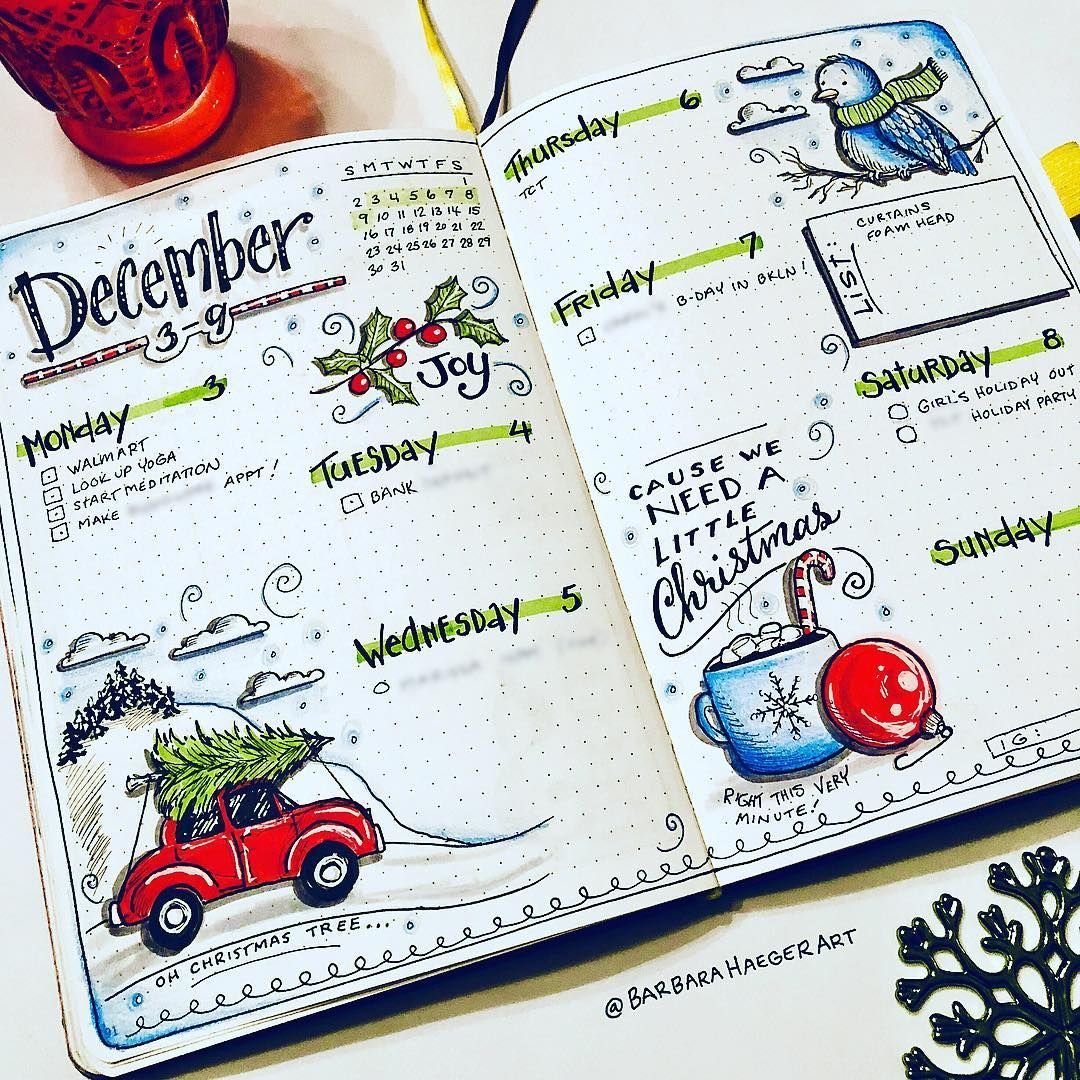 December
3-9
S M T W T F S
1
2 3 4 5 6 7 8
9 10 11 12 13 14 15
16 17 18 19 20 21 22
23 24 25 26 27 28 29
30 31
Joy
Monday 3
WALMART
LOOK UP YOGA
START MEDITATION
MAKE APPT!
Tuesday 4
BANK
Wednesday 5
OH CHRISTMAS TREE...
Thursday 6
TCT
Friday 7
B-DAY IN BKLN!
LIST:
CURTAINS
FOAM HEAD
Saturday 8
GIRL'S HOLIDAY OUT
HOLIDAY PARTY
CAUSE WE
NEED A
LITTLE
Christmas
RIGHT THIS VERY
MINUTE!
Sunday
IG:
@BARBARAHAEGERART